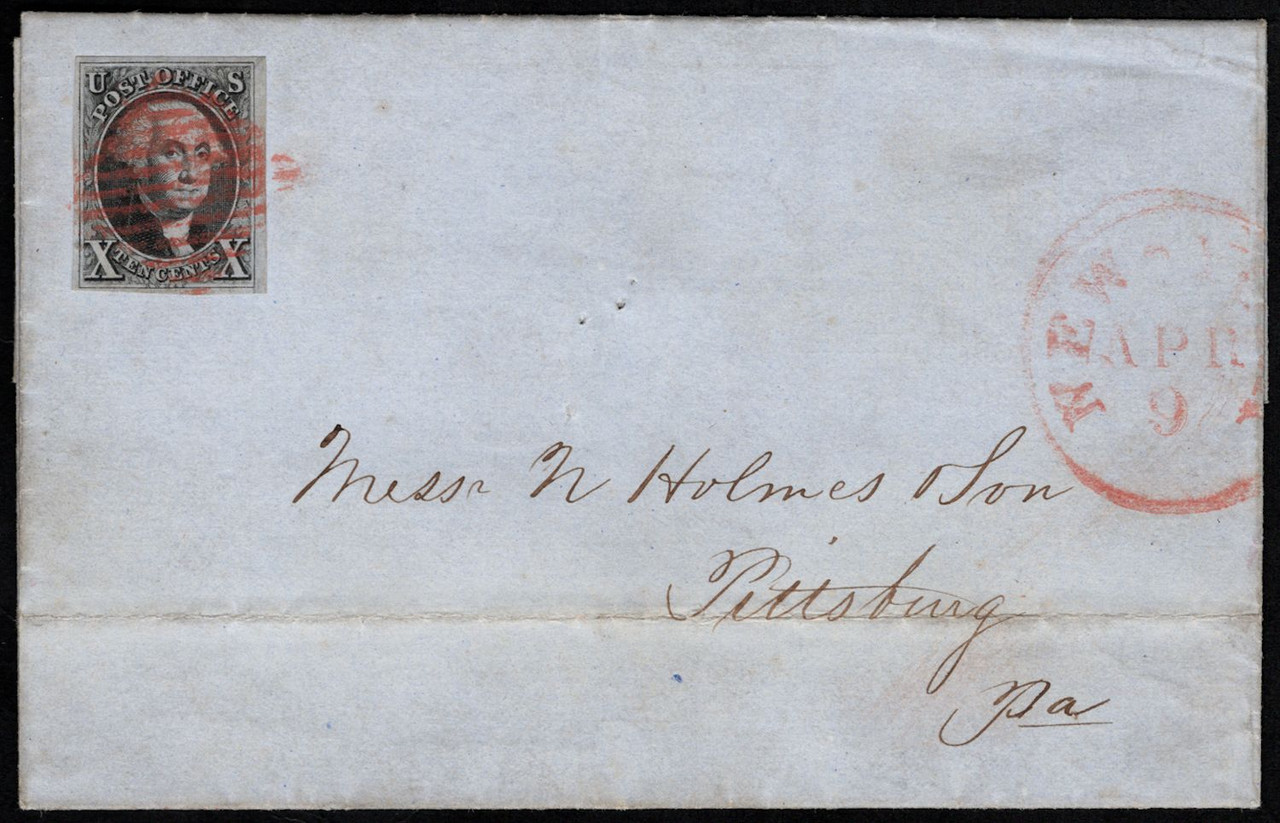 U S
POST OFFICE
X TEN CENTS X
NEW
APR
9
Messr N Holmes & Son
Pittsburg
Pa